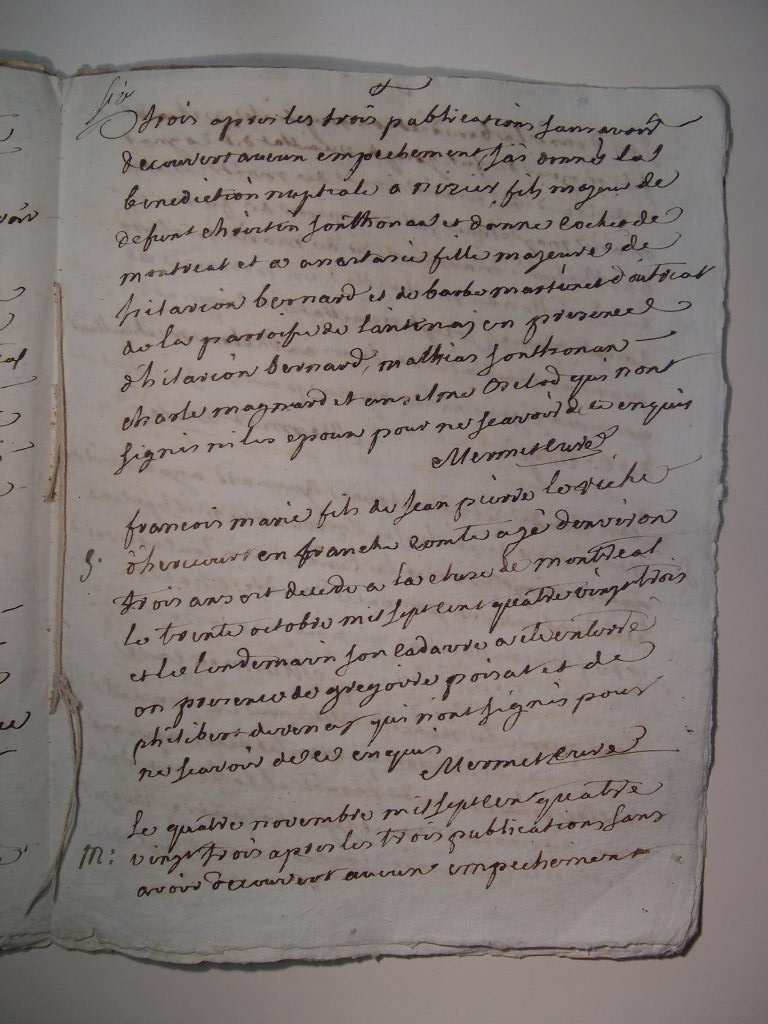 trois apres les trois publications sans avoir
decouvert aucun empechement j'ai donné la
benediction nuptiale a nizier fils majeur de
defunt
montreal et a anastasie fille majeure de
hilarion bernard et de barbe martinet d'outriat
de la parroisse de lantenay en presence
d'hilarion bernard, mathias sonthonax
charle magnard et anselme qui n'ont
signés ni les epoux pour ne scavoir de ce enquis
Mermet curé
francois marie fils de jean pierre le riche
en franche comté agé d'environ
trois ans est decedé a la cluse de montreal
le trente octobre mil sept cent quatre vingt trois
et le lendemain son cadavre a eté enterré
en presence de gregoire poisat et de
philibert qui n'ont signés pour
ne scavoir de ce enquis
Mermet curé
S.
le quatre novembre mil sept cen quatre
M: vingt trois apres les trois publications sans
avoir decouvert aucun empechement